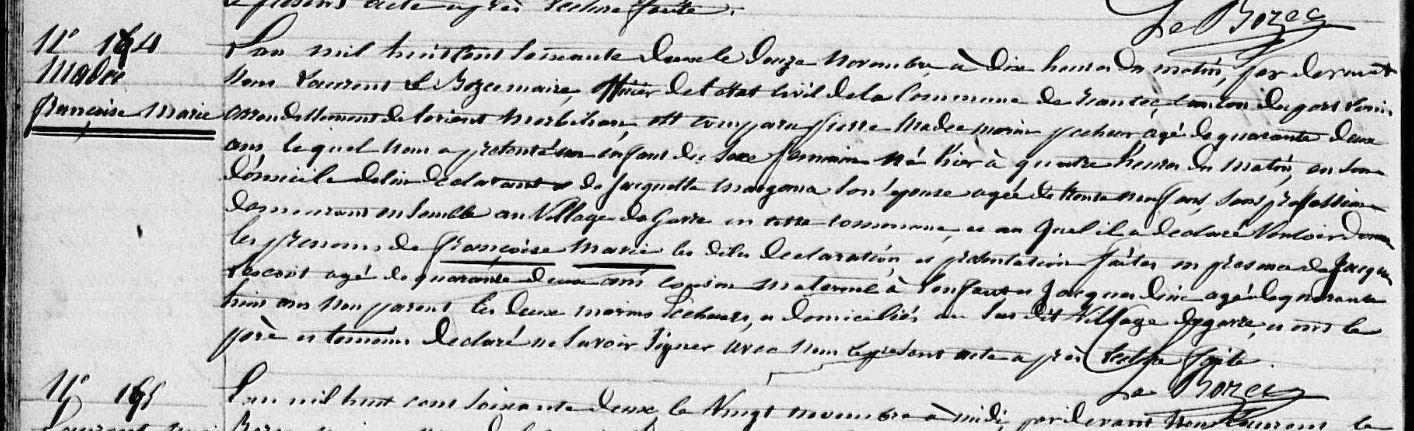 présent acte après lecture faite.
Le Bozec
N° 164
Madec
Françoise Marie
L'an mil huit cent soixante deux le douze novembre, à dix heures du matin, par devant
nous Laurent Le Bozec maire, officier de l'état civil de la Commune de canton de port Louis
arrondissement de Lorient Morbihan, est comparu pierre Madec marin pecheur, âgé de quarante deux
ans lequel nous a présenté un enfant du sexe féminin né hier à quatre heures du matin, en son
domicile de lui déclarant & de Jacquette son épouse agée de trente neuf ans, sans profession
demeurant ensemble au Village de en cette commune, et au quel il a déclaré Vouloir donner
les prenoms de françoise Marie les dites déclaration, et présentation faites en présence de Jacques
agé de quarante deux ans cousin maternel à l'enfant et Jacques agé de quarante
huit ans non parent les deux marins pecheurs, et domiciliés au sus dit Village et ont les
père et temoins déclaré ne savoir signer avec nous le présent acte après lecture faite.
Le Bozec
N° 165
L'an mil huit cent soixante deux le Vingt novembre à midi, par devant nous Laurent Le